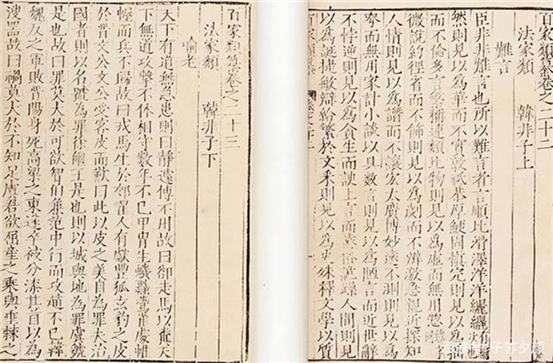 百家類纂卷之二十二
法家類 韓非子上
難言
臣非非難言也所以難言者言順比滑澤洋洋纚纚
然則見以為華而不實敦祗恭厚鯁固慎完則見以為拙
而不倫多言繁稱連類比物則見以為虛而無用總
微說約徑省而不飾則見以為劌而不辯激急親近探知
人情則見以為譖而不讓宏大廣博妙遠不測則見以為
夸而無用家計小談以具數言則見以為陋言而近世辭
不悖逆則見以為貪生而諛上言而遠俗詭躁人間則見
以為誕捷敏辯給繁於文采則見以為史殊釋文學以質
百家類纂卷之二十三
法家類 韓非子下
喻老
天下有道無急患則曰靜遽傳不用故曰卻走馬以糞天
下無道攻擊不休相守數年不已甲冑生蟣蝨鷰雀處帷
幄而兵不歸故曰戎馬生於郊翟人有獻豐狐玄豹之皮
於晉文公文公受客皮而歎曰此以皮之美自為罪夫治
國者則以名號為罪徐偃王是也則以城與地為罪虞虢
是也故曰罪莫大於可欲智伯兼范中行而攻趙不已韓
魏反之軍敗晉陽身死高梁之東遂卒被分漆其首以為
溲器故曰禍莫大於不知足虞君欲屈產之乘與垂棘之